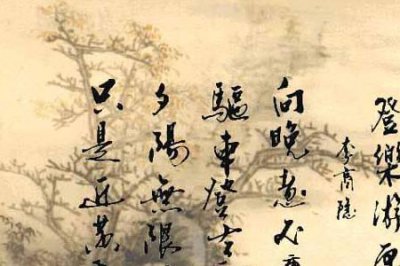 登樂游原
李商隱
向晚意不
驅車登古
夕陽無限
只是近黃